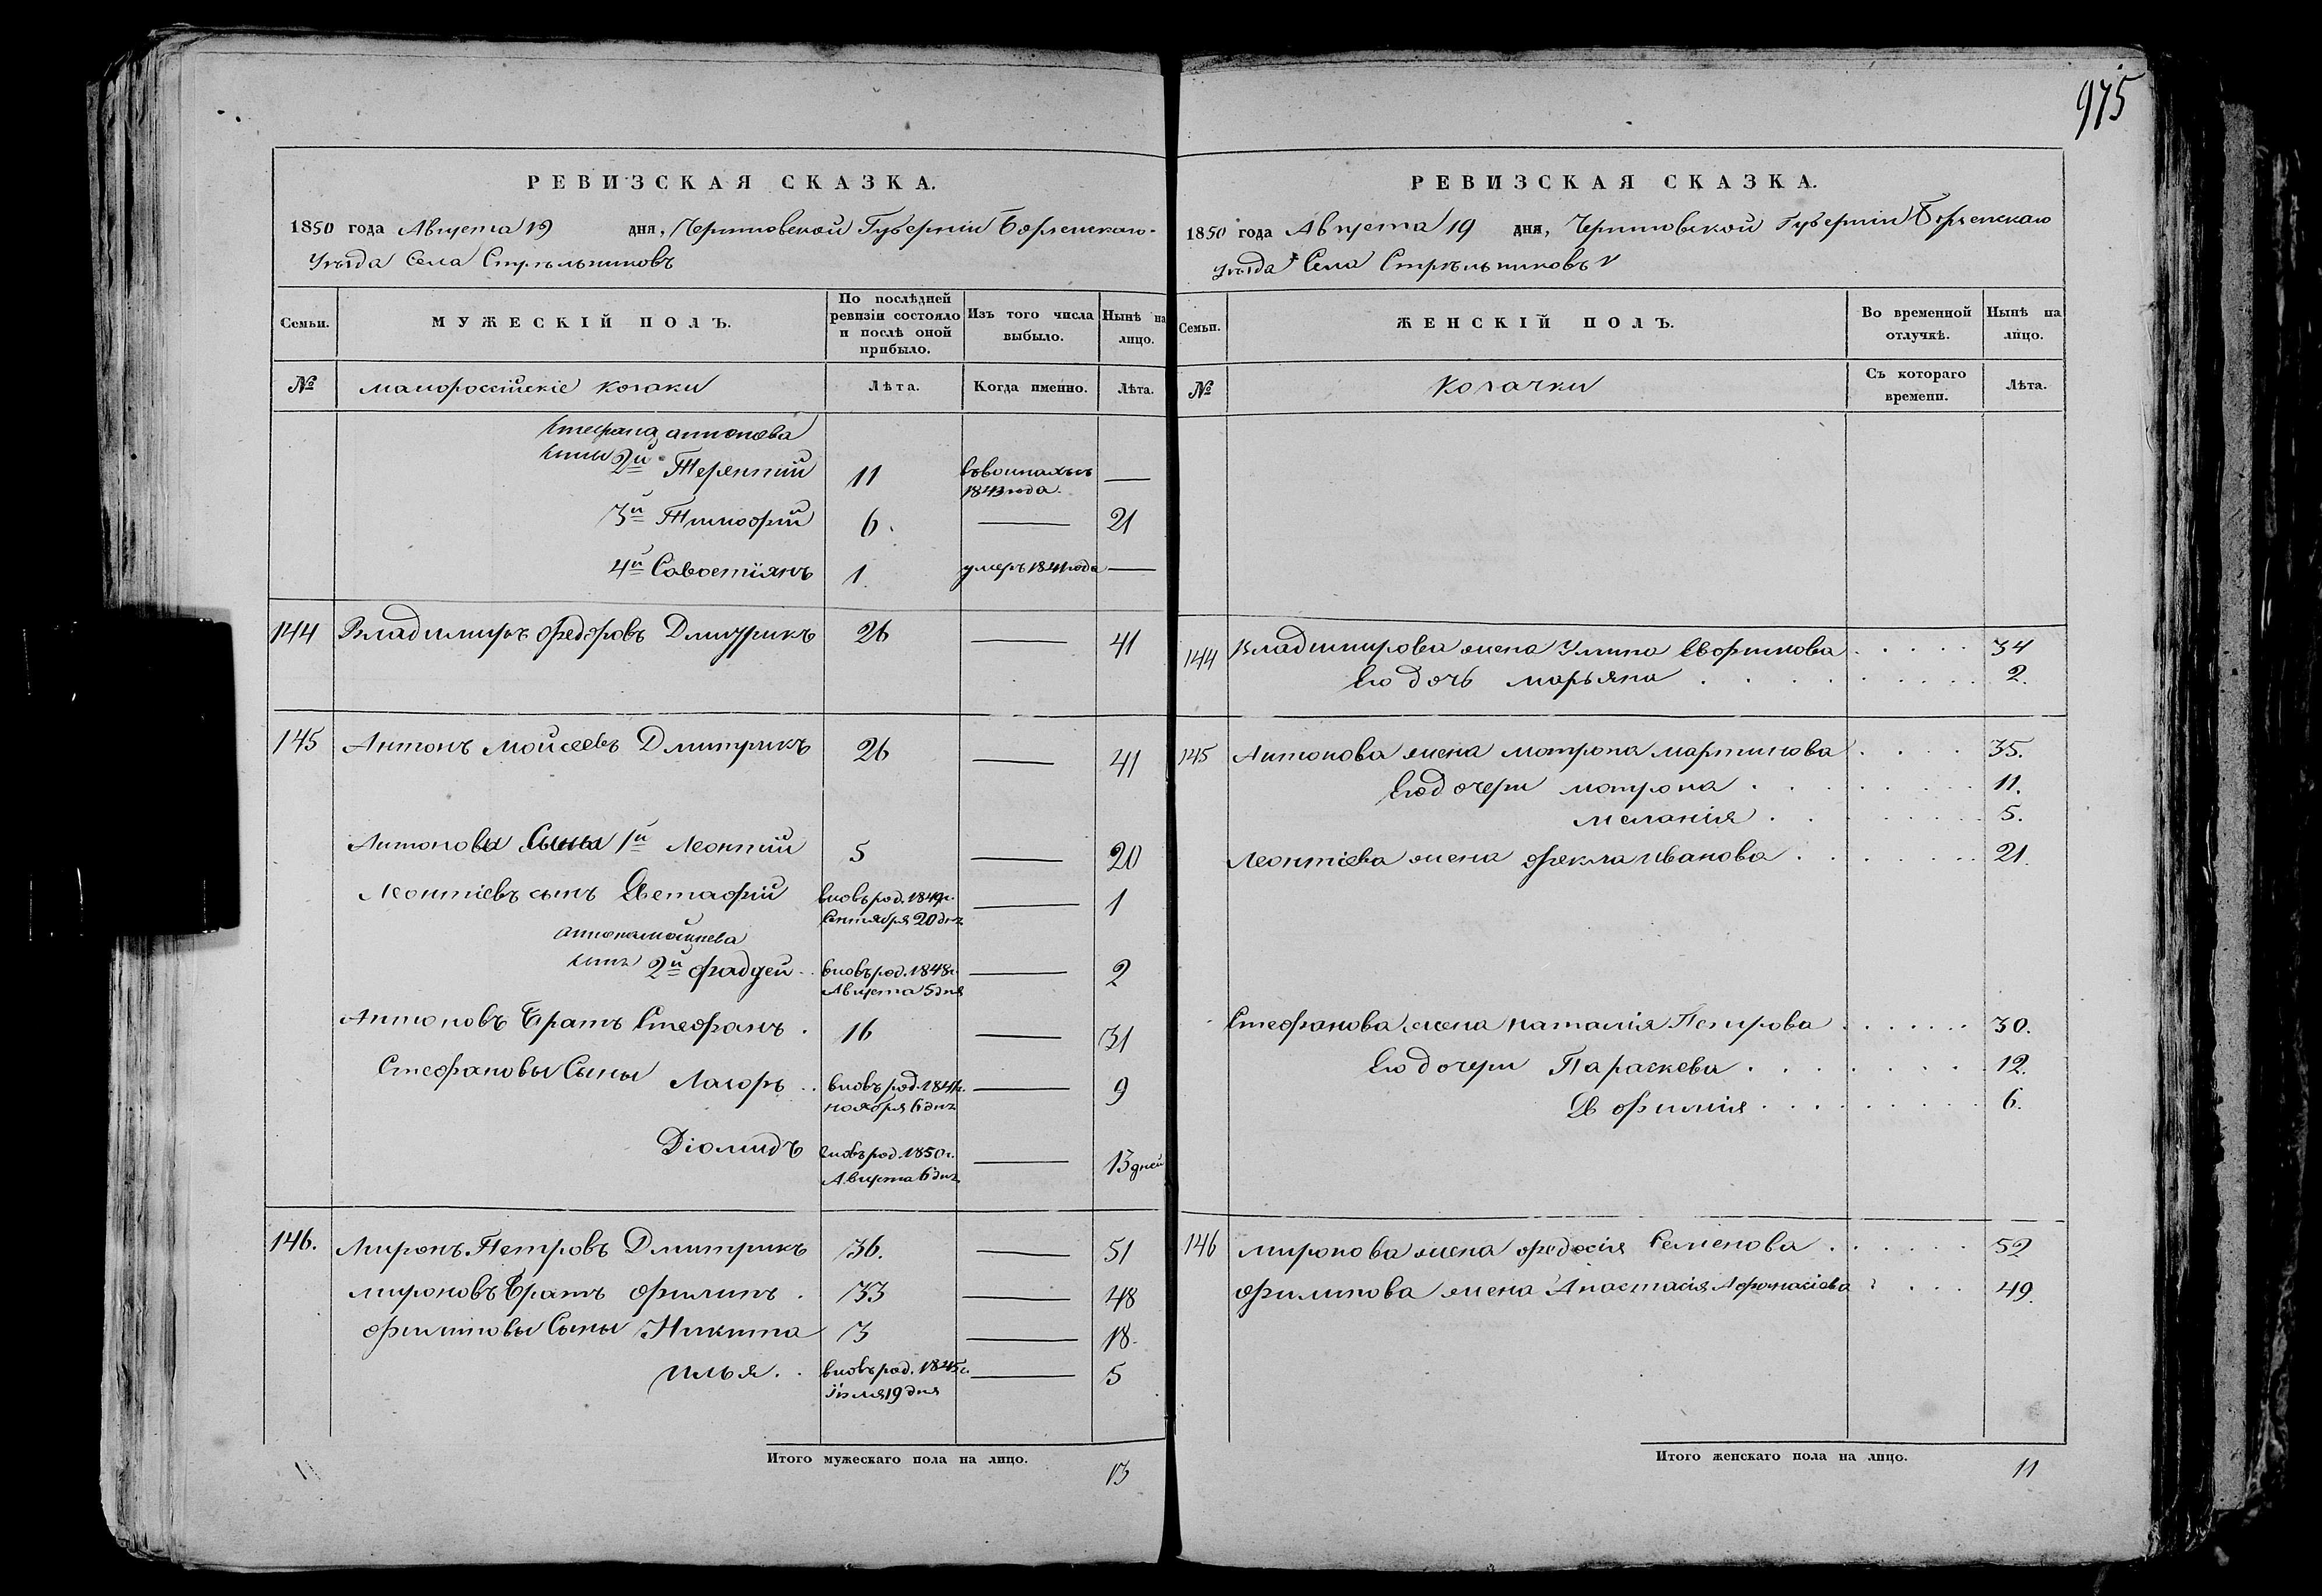 975
РЕВИЗСКАЯ СКАЗКА.
1850 года Августа 19 дня, Черниговской Губерніи Борзенскаго
Уѣзда Села Стрѣльниковъ
Семьи.
МУЖЕСКІЙ ПОЛЪ.
По послѣдней ревизіи состояло и послѣ оной прибыло.
Изъ того числа выбыло.
Нынѣ на лицо.
№ малороссійскіе козаки Лѣта. Когда именно. Лѣта.
Стефана Антонова
сыны 2й Терентий 11
1843 года —
3й Тимофий 6. — 21
4й Савостіянъ 1. умеръ 1841 года —
144 Владимиръ Федоровъ Дмитрикъ 26 — 41
145 Антонъ Мойсеевъ Дмитрикъ 26 — 41
Антоновы Сыны 1й Леонтий 5 — 20
Леонтіевъ сынъ Евстафій вновь род. 1849г. — 1
Сентября 20 дня
Антона Мойсеева
сынъ 2й Фадей вновь род. 1848г. — 2
Августа 5 дня
Антоновъ Братъ Стефанъ. 16 — 31
Стефановы Сыны Лазорь вновь род. 1841г. — 9
ноября 6 дня
Діомидъ вновь род. 1850г. — 13 дней
Августа 6 дня
146. Миронъ Петровъ Дмитрикъ 36. — 51
Мироновъ Братъ Филипъ. 33 — 48
Филиповы Сыны Никита 3 — 18.
Илья. вновь род. 1845г. — 5
Іюля 19 дня
Итого мужескаго пола на лицо. 13
РЕВИЗСКАЯ СКАЗКА.
1850 года Августа 19 дня, Черниговской Губерніи Борзенскаго
Уѣзда Села Стрѣльниковъ
Семьи.
ЖЕНСКІЙ ПОЛЪ.
Во временной отлучкѣ.
Нынѣ на лицо.
№ Козачки Съ котораго времени. Лѣта.
144 Владимирова жена Улита 34
Его дочь Марьяна 2.
145 Антонова жена Матрона Мартинова 35.
Его дочери Матрона 11.
Меланія 5.
Леонтіева жена Фекла Иванова 21.
Стефанова жена Наталія Петрова 30.
Его дочери Параскева 12.
Ефимія 6.
146 Миронова жена Федосія Семенова 52
Филипова жена Анастасія Афонасіева 49.
Итого женскаго пола на лицо. 11